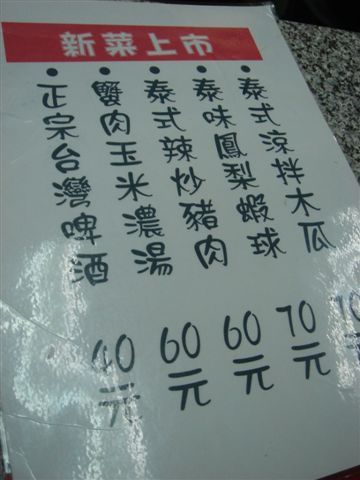 新菜上市
• 泰式涼拌木瓜
• 泰味鳳梨蝦球 70元
• 泰式辣炒豬肉 60元
• 蟹肉玉米濃湯 60元
• 正宗台灣啤酒 40元